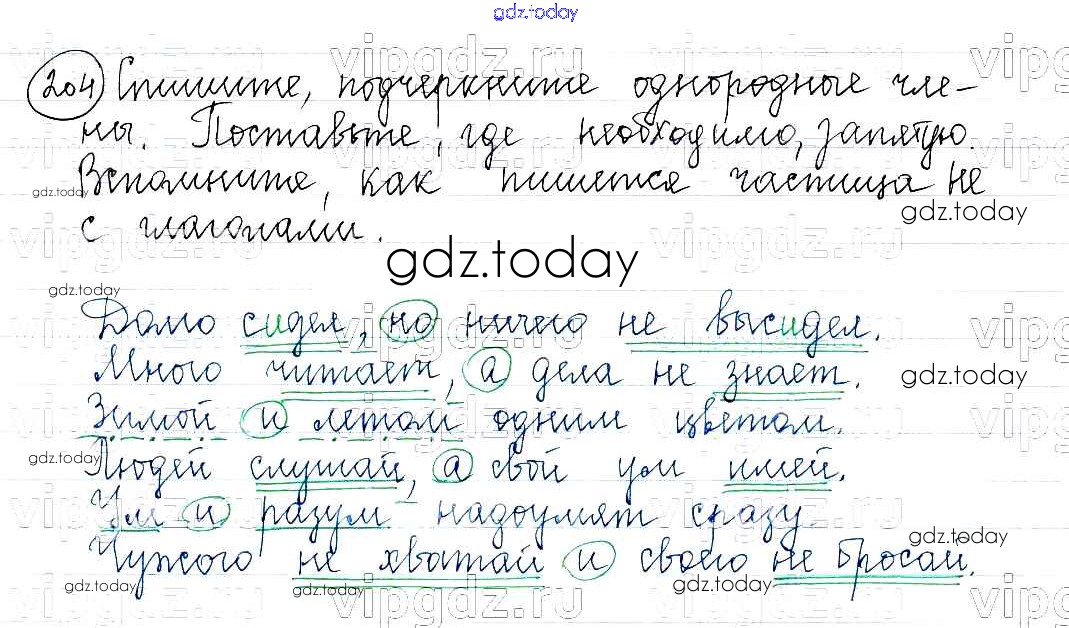 gdz.today
vipgdz.ru vipgdz.ru vipg
204 Спишите, подчеркните однородные чле-
ны. Поставьте, где необходимо, запятую.
gdz.today
Вспомните, как пишется частица не
gdz.today
с глаголами.
gdz.today
gdz.today
Долго сидел, но ничего не высидел.
Много читает, а дела не знает.
gdz.today
Зимой и летом одним цветом.
gdz.today
Людей слушай, а свой ум имей.
Ум и разум надоумят сразу.
gdz.today
Чужого не хватай и своего не бросай.
gdz.today gdz.today gdz.today
vipgdz.ru vipgdz.ru vipg